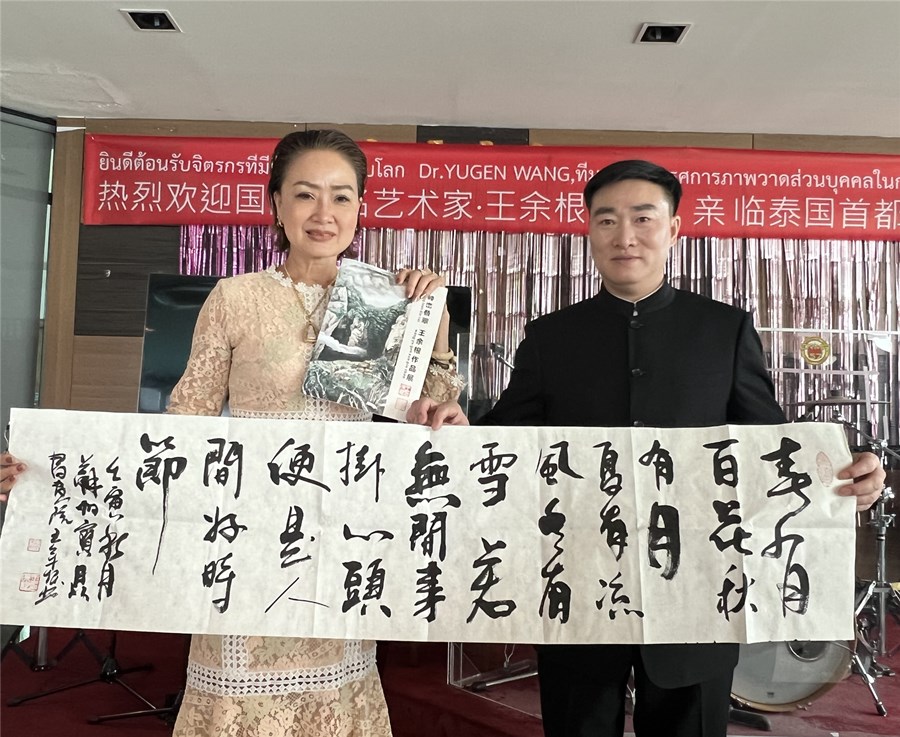 ยินดีต้อนรับจิตรกรที่มี โลก Dr.YUGEN WANG, การภาพวาดส่วนบุคคลใน
热烈欢迎国 艺术家·王余根 亲临泰国首都
王余根作品展
春有
百花秋
有月
夏有凉
風冬有
雪若
無閒事
掛心頭
便是人
間好時
節
壬寅秋月